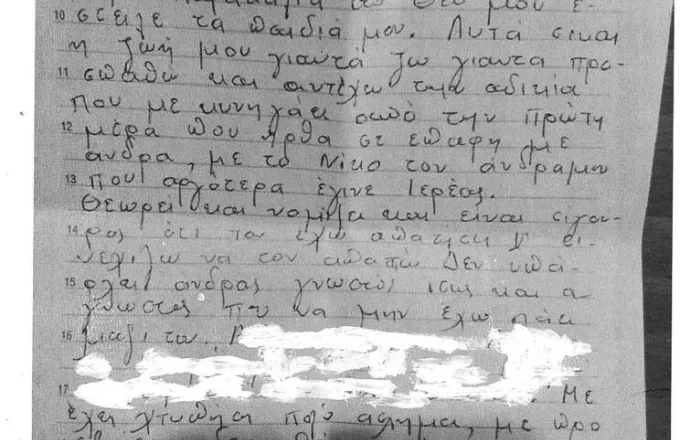 10 στειλε τα παιδιά μου. Αυτά ειναι
η ζωή μου γιαυτά ζω γιαυτα προ-
11 σπαθω και αντέχω την αδικία
που με κυνηγάει από την πρώτη
12 μέρα που ήρθα σε επαφη με
άνδρα, με το Νικο τον άνδραμου
13 που αργότερα έγινε Ιερέας.
Θεωρεί και νομίζει και είναι σιγου-
14 ρος ότι τον έχω απατήσει
να τον απατω Δεν υπά-
15 ρχει άνδρας γνωστός ισως και α-
γνωστος που να μην έχω πάει
16 μαζι του.
17 Με
έχει χτυπήσει πολύ άσχημα, με προ